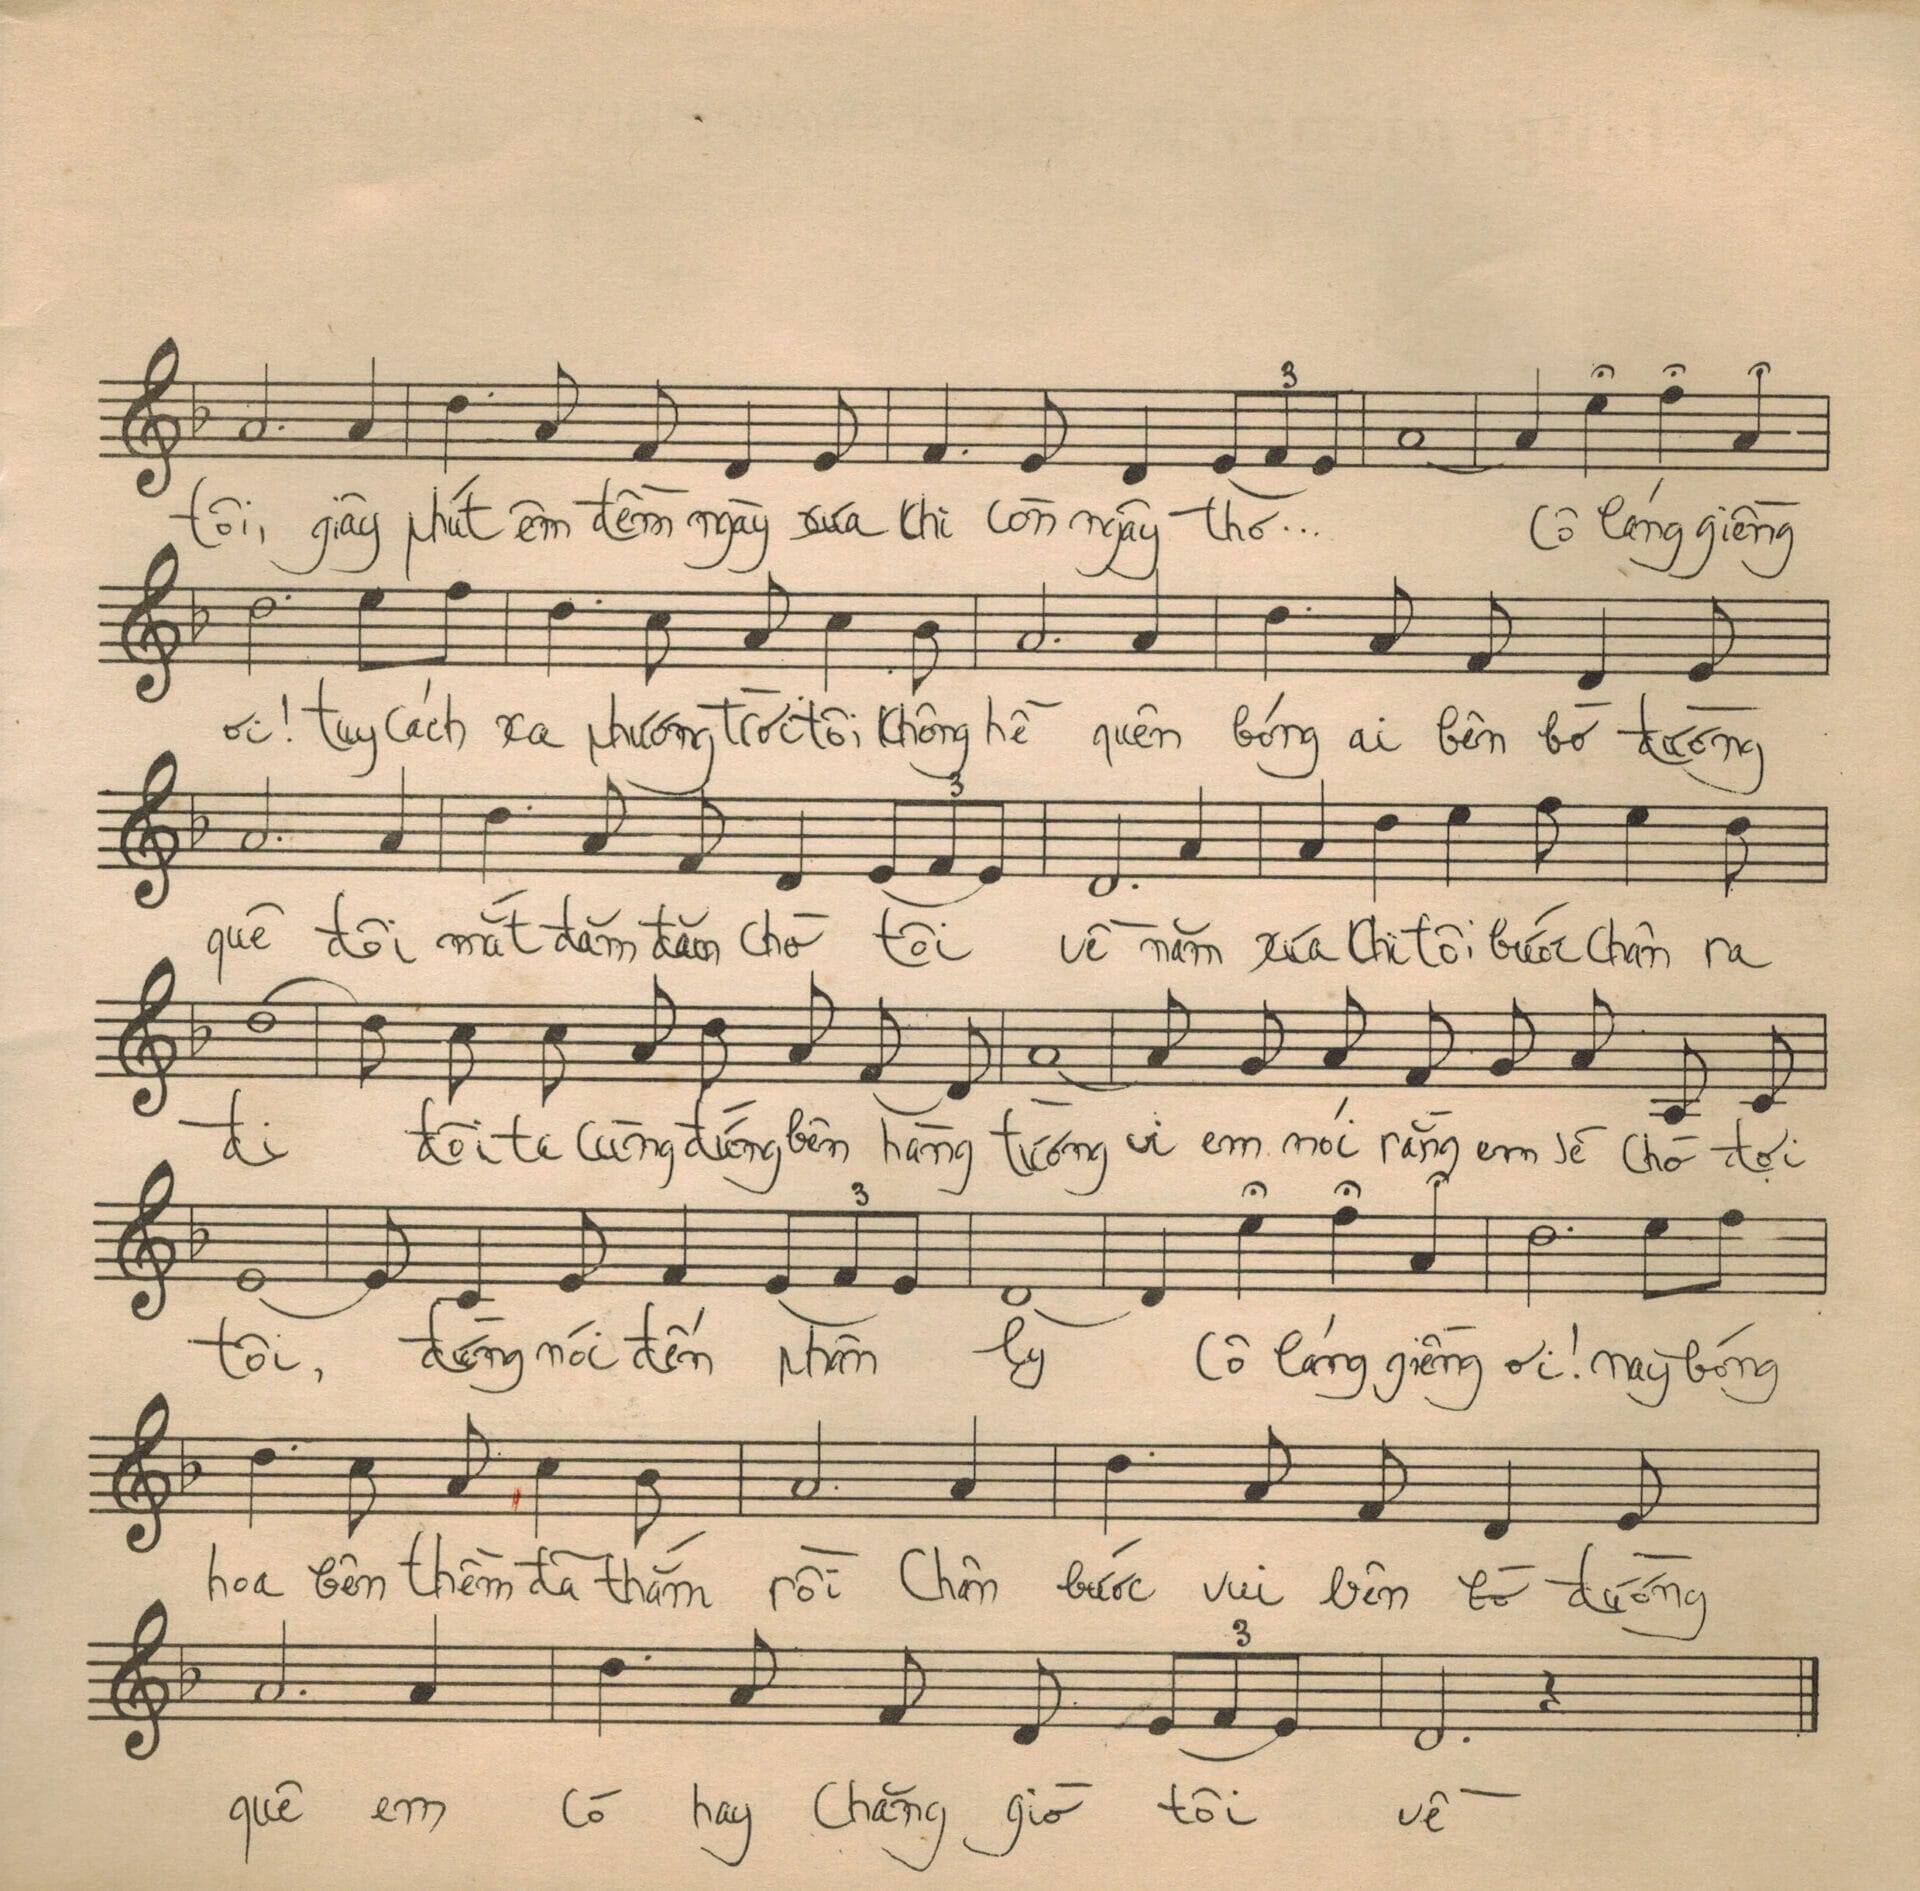 3
tôi, giây phút êm đềm ngày xưa khi còn ngây thơ... Cô láng giềng
ơi! tuy cách xa phương trời tôi không hề quên bóng ai bên bờ đường
3
quê đôi mắt đăm đăm chờ tôi về năm xưa khi tôi bước chân ra
đi đôi ta cùng đứng bên hàng tường vi em nói rằng em sẽ chờ đợi
3
tôi, đừng nói đến phân ly Cô láng giềng ơi! nay bóng
hoa bên thềm đã thắm rồi Chân bước vui bên bờ đường
3
quê em có hay chăng giờ tôi về